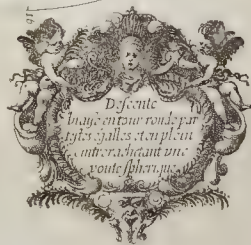 Descente
biaise en tour ronde par
testes egalles et en plein
cintre rachetant une
voute spherique